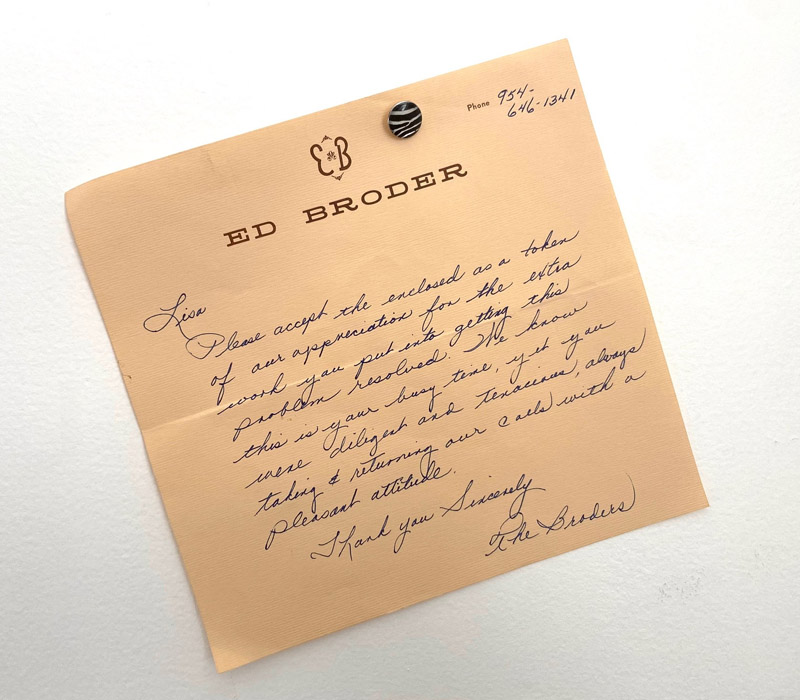 Phone 954-
646-1341
EB
ED BRODER
Lisa
Please accept the enclosed as a token
of our appreciation for the extra
work you put into getting this
problem resolved. We know
this is your busy time, yet you
were diligent and tenacious, always
taking & returning our calls with a
pleasant attitude.
Thank you Sincerely
The Broders